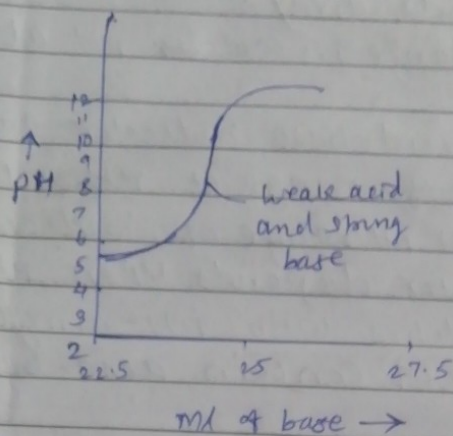 12
11
10
9
pH
8
7
6
5
4
3
2
weak acid
and strong
base
22.5
25
27.5
Ml of base →